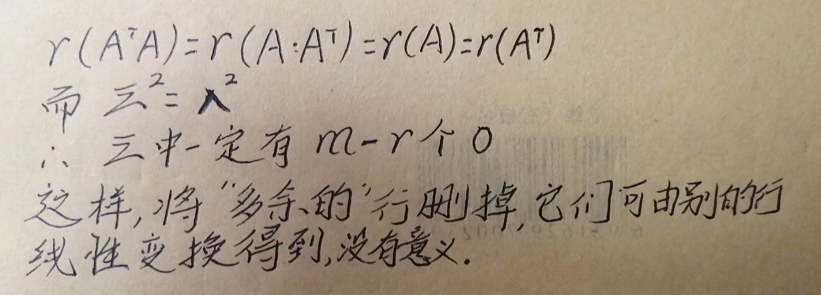 r(AᵀA)=r(A·Aᵀ)=r(A)=r(Aᵀ)
而 Ξ²=λ²
∴ Ξ中一定有 m-r个0
这样,将“多余的”行删掉,它们可由别的行
线性变换得到,没有意义.